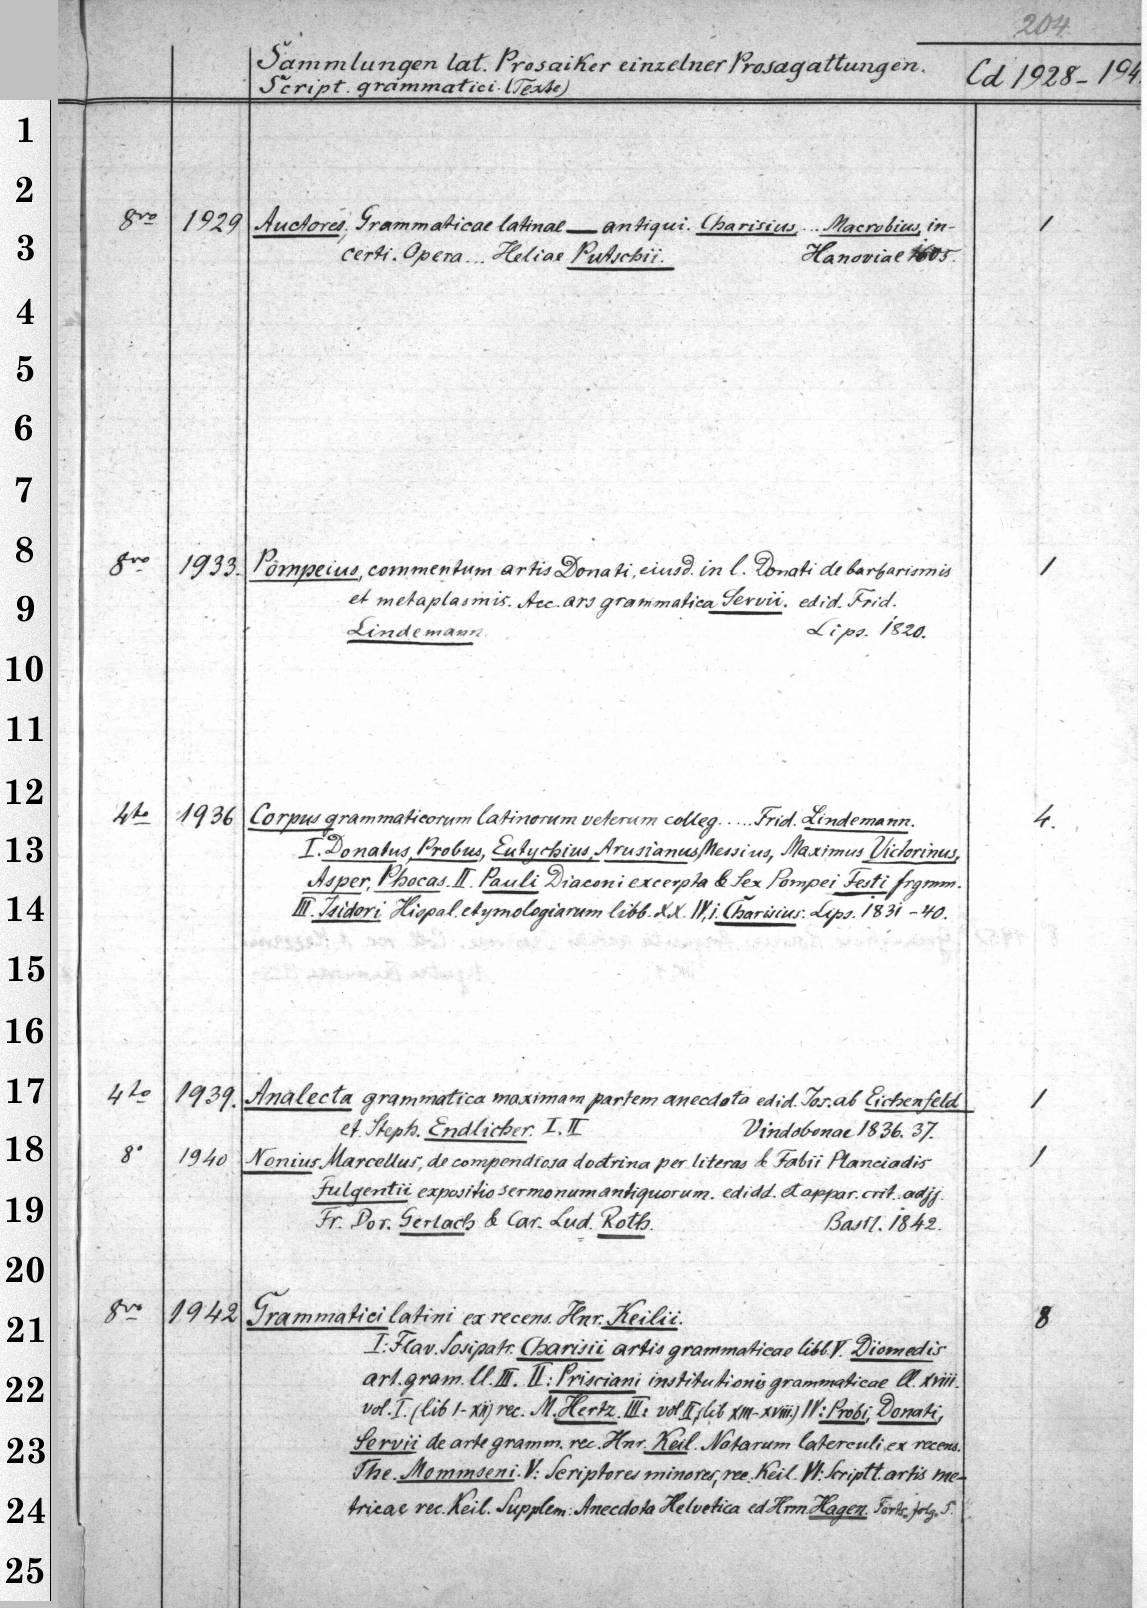 204
Sammlungen lat. Prosaiker einzelner Prosagattungen. Cd 1928-194
Script. grammatici. (Texte)
1
2
8ro 1929 Auctores, Grammaticae latinae — antiqui. Charisius, ... Macrobius, in- 1
3
certi. Opera... Heliae Putschii. Hanoviae 1605.
4
5
6
7
8
8ro 1933. Pompeius, commentum artis Donati, eiusd. in l. Donati de barbarismis 1
9
et metaplasmis. Acc. ars grammatica Servii. edid. Frid.
Lindemann. Lips. 1820.
10
11
12
4to 1936 Corpus grammaticorum latinorum veterum colleg. .... Frid. Lindemann. 4.
13
I. Donatus, Probus, Eutychius, Arusianus Messius, Maximus Victorinus,
Asper, Phocas. II. Pauli Diaconi excerpta & Sex Pompei Festi frgmm.
14
III. Isidori Hispal. etymologiarum libb. XX. IV, i. Charisius. Lips. 1831-40.
15
16
17
4to 1939. Analecta grammatica maximam partem anecdota edid. Jos. ab Eichenfeld 1
et Steph. Endlicher. I. II Vindobonae 1836. 37.
18
8° 1940 Nonius Marcellus, de compendiosa doctrina per literas & Fabii Planciadis 1
Fulgentii expositio sermonum antiquorum. edidd. et appar. crit. adjj.
19
Fr. Dor. Gerlach & Car. Lud. Roth. Basil. 1842.
20
8vo 1942 Grammatici latini ex recens. Hnr. Keilii. 8
21
I: Flav. Sosipatr. Charisii artis grammaticae libb. V. Diomedis
art. gram. ll. III. II: Prisciani institutionis grammaticae ll. XVIII.
22
vol. I. (lib I-XII) rec. M. Hertz. III: vol II, (lib XIII-XVIII) IV: Probi, Donati,
23
Servii de arte gramm. rec. Hnr. Keil. Notarum laterculi ex recens.
The. Mommseni. V: Scriptores minores, rec. Keil. VI: Scriptt. artis me-
24
tricae rec. Keil. Supplem: Anecdota Helvetica ed Hrm. Hagen. Forts. folg. S.
25